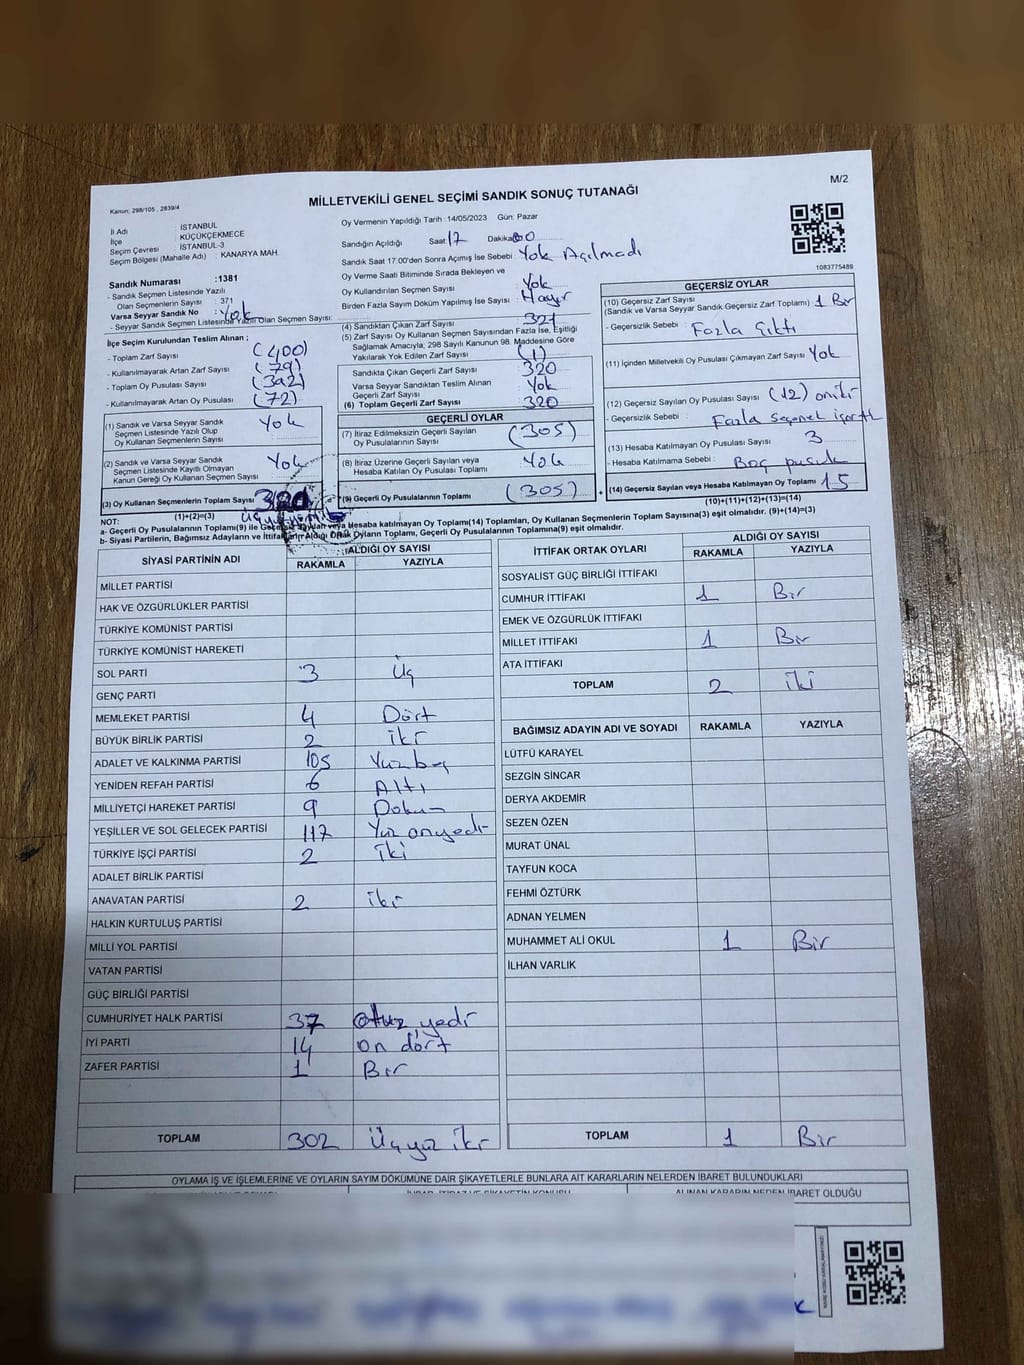 M/2
Kanun; 298/105 , 2839/4
MİLLETVEKİLİ GENEL SEÇİMİ SANDIK SONUÇ TUTANAĞI
İl Adı : İSTANBUL
İlçe : KÜÇÜKÇEKMECE
Seçim Çevresi : İSTANBUL-3
Seçim Bölgesi (Mahalle Adı) : KANARYA MAH.
Sandık Numarası :1381
- Sandık Seçmen Listesinde Yazılı
Olan Seçmenlerin Sayısı : 371
Varsa Seyyar Sandık No : Yok
- Seyyar Sandık Seçmen Listesinde Yazılı Olan Seçmen Sayısı:
Oy Vermenin Yapıldığı Tarih :14/05/2023 Gün: Pazar
Sandığın Açıldığı Saat: 17 Dakika:
Sandık Saat 17.00'den Sonra Açımış İse Sebebi : Yok Açılmadı
Oy Verme Saati Bitiminde Sırada Bekleyen ve
Oy Kullandırılan Seçmen Sayısı : Yok
Birden Fazla Sayım Döküm Yapılmış İse Sayısı : Hayır
1083775489
İlçe Seçim Kurulundan Teslim Alınan ;
- Toplam Zarf Sayısı : (400)
- Kullanılmayarak Artan Zarf Sayısı : (79)
- Toplam Oy Pusulası Sayısı : (392)
- Kullanılmayarak Artan Oy Pusulası : (72)
(1) Sandık ve Varsa Seyyar Sandık
Seçmen Listesinde Yazılı Olup
Oy Kullanan Seçmenlerin Sayısı : Yok
(2) Sandık ve Varsa Seyyar Sandık
Seçmen Listesinde Kayıtlı Olmayan
Kanun Gereği Oy Kullanan Seçmenlerin Sayısı : Yok
(3) Oy Kullanan Seçmenlerin Toplam Sayısı
(1)+(2)=(3)
(4) Sandıktan Çıkan Zarf Sayısı 321
(5) Zarf Sayısı Oy Kullanan Seçmen Sayısından Fazla İse, Eşitliği
Sağlamak Amacıyla, 298 Sayılı Kanunun 98. Maddesine Göre
Yakılarak Yok Edilen Zarf Sayısı : (1)
Sandıkta Çıkan Geçerli Zarf Sayısı : 320
Varsa Seyyar Sandıktan Teslim Alınan
Geçerli Zarf Sayısı : Yok
(6) Toplam Geçerli Zarf Sayısı : 320
GEÇERLİ OYLAR
(7) İtiraz Edilmeksizin Geçerli Sayılan
Oy Pusulalarının Sayısı : (305)
(8) İtiraz Üzerine Geçerli Sayılan veya
Hesaba Katılan Oy Pusulası Toplamı : Yok
(9) Geçerli Oy Pusulalarının Toplamı (305) +
GEÇERSİZ OYLAR
(10) Geçersiz Zarf Sayısı
(Sandık ve Varsa Seyyar Sandık Geçersiz Zarf Toplamı) : 1 Bir
- Geçersizlik Sebebi : Fazla Çıktı
(11) İçinden Milletvekili Oy Pusulası Çıkmayan Zarf Sayısı : Yok
(12) Geçersiz Sayılan Oy Pusulası Sayısı : (12) oniki
- Geçersizlik Sebebi : Fazla seçenek
(13) Hesaba Katılmayan Oy Pusulası Sayısı : 3
- Hesaba Katılmama Sebebi : Boş pusula
(14) Geçersiz Sayılan veya Hesaba Katılmayan Oy Toplamı 15
(10)+(11)+(12)+(13)=(14)
NOT:
a- Geçerli Oy Pusulalarının Toplamı(9) ile Geçersiz Sayılan veya Hesaba katılmayan Oy Toplam(14) Toplamları, Oy Kullanan Seçmenlerin Toplam Sayısına(3) eşit olmalıdır. (9)+(14)=(3)
b- Siyasi Partilerin, Bağımsız Adayların ve İttifakların Aldığı Ortak Oyların Toplamı, Geçerli Oy Pusulalarının Toplamına(9) eşit olmalıdır.
SİYASİ PARTİNİN ADI ALDIĞI OY SAYISI
RAKAMLA YAZIYLA
MİLLET PARTİSİ
HAK VE ÖZGÜRLÜKLER PARTİSİ
TÜRKİYE KOMÜNİST PARTİSİ
TÜRKİYE KOMÜNİST HAREKETİ
SOL PARTİ 3 Üç
GENÇ PARTİ
MEMLEKET PARTİSİ 4 Dört
BÜYÜK BİRLİK PARTİSİ 2 iki
ADALET VE KALKINMA PARTİSİ 105 Yüzbeş
YENİDEN REFAH PARTİSİ 6 Altı
MİLLİYETÇİ HAREKET PARTİSİ 9 Dokuz
YEŞİLLER VE SOL GELECEK PARTİSİ 117 Yüz onyedi
TÜRKİYE İŞÇİ PARTİSİ 2 iki
ADALET BİRLİK PARTİSİ
ANAVATAN PARTİSİ 2 iki
HALKIN KURTULUŞ PARTİSİ
MİLLİ YOL PARTİSİ
VATAN PARTİSİ
GÜÇ BİRLİĞİ PARTİSİ
CUMHURİYET HALK PARTİSİ 37 otuz yedi
İYİ PARTİ 14 on dört
ZAFER PARTİSİ 1 Bir
TOPLAM 302 Üçyüz iki
İTTİFAK ORTAK OYLARI ALDIĞI OY SAYISI
RAKAMLA YAZIYLA
SOSYALİST GÜÇ BİRLİĞİ İTTİFAKI
CUMHUR İTTİFAKI 1 Bir
EMEK VE ÖZGÜRLÜK İTTİFAKI
MİLLET İTTİFAKI 1 Bir
ATA İTTİFAKI
TOPLAM 2 iki
BAĞIMSIZ ADAYIN ADI VE SOYADI RAKAMLA YAZIYLA
LÜTFÜ KARAYEL
SEZGİN SİNCAR
DERYA AKDEMİR
SEZEN ÖZEN
MURAT ÜNAL
TAYFUN KOCA
FEHMİ ÖZTÜRK
ADNAN YELMEN
MUHAMMET ALİ OKUL 1 Bir
İLHAN VARLIK
TOPLAM 1 Bir
OYLAMA İŞ VE İŞLEMLERİNE VE OYLARIN SAYIM DÖKÜMÜNE DAİR ŞİKAYETLERLE BUNLARA AİT KARARLARIN NELERDEN İBARET BULUNDUKLARI
ALINAN KARARIN NEDEN İBARET OLDUĞU